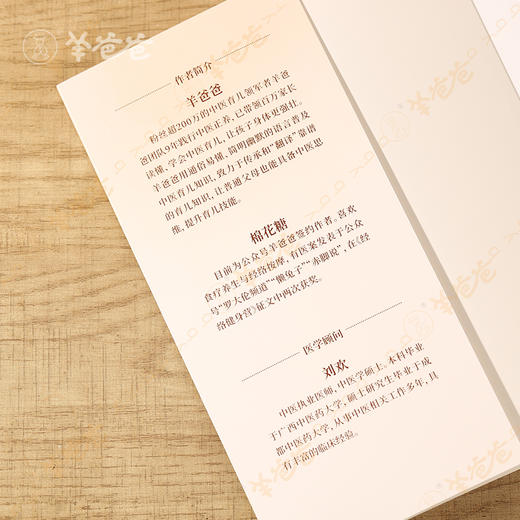 羊爸爸
作者简介
羊爸爸
粉丝超200万的中医育儿领军者羊爸
爸团队9年践行中医正养，已带领百万家长
读懂，学会中医育儿，让孩子身体更强壮。
羊爸爸用通俗易懂，简明幽默的语言普及
中医育儿知识，致力于传承和“翻译”靠谱
的育儿知识，让普通父母也能具备中医思
维，提升育儿技能。
棉花糖
目前为公众号羊爸爸签约作者，喜欢
食疗养生与经络按摩，有医案发表于公众
号“罗大伦频道”“懒兔子”“赤脚说”，在《经
络健身营》征文中两次获奖。
医学顾问
刘欢
中医执业医师，中医学硕士。本科毕业
于广西中医药大学，硕士研究生毕业于成
都中医药大学，从事中医相关工作多年，具
有丰富的临床经验。
羊爸爸
羊爸爸
羊爸爸